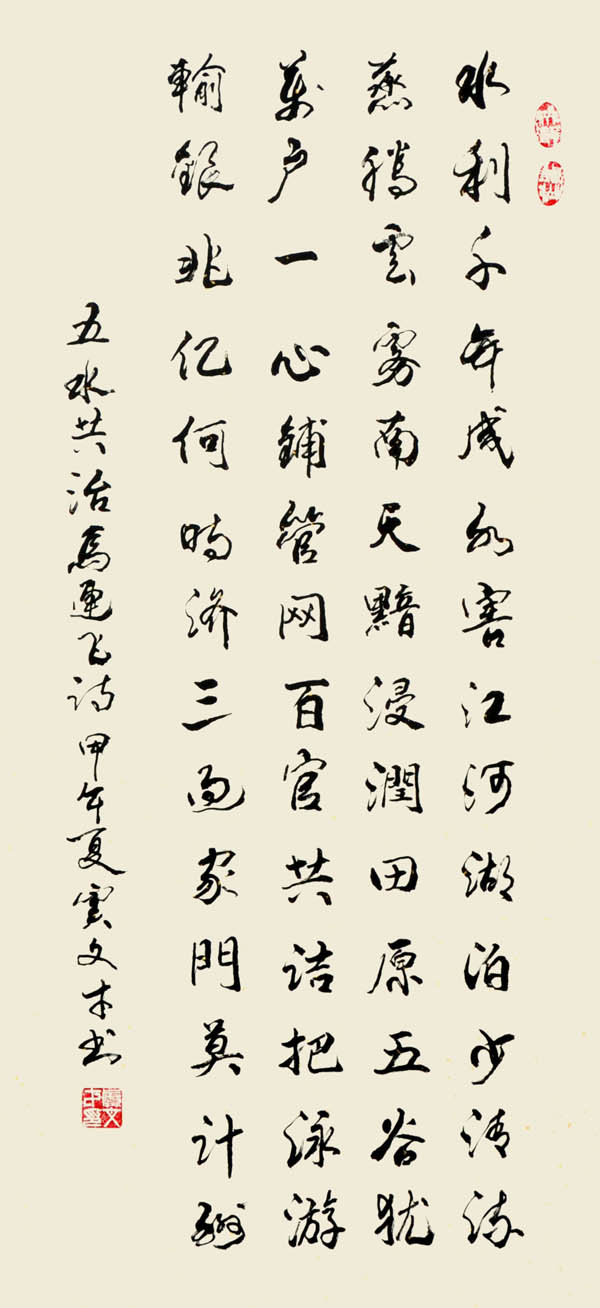 水利千年成水害江河湖泊少清流
蒸腾雲雾南天黯浸潤田原五谷犹
萬户一心鋪管网百官共诘把泳游
輸銀兆亿何时济三過家門莫计酬
五水共治馬連飞诗甲午夏文书